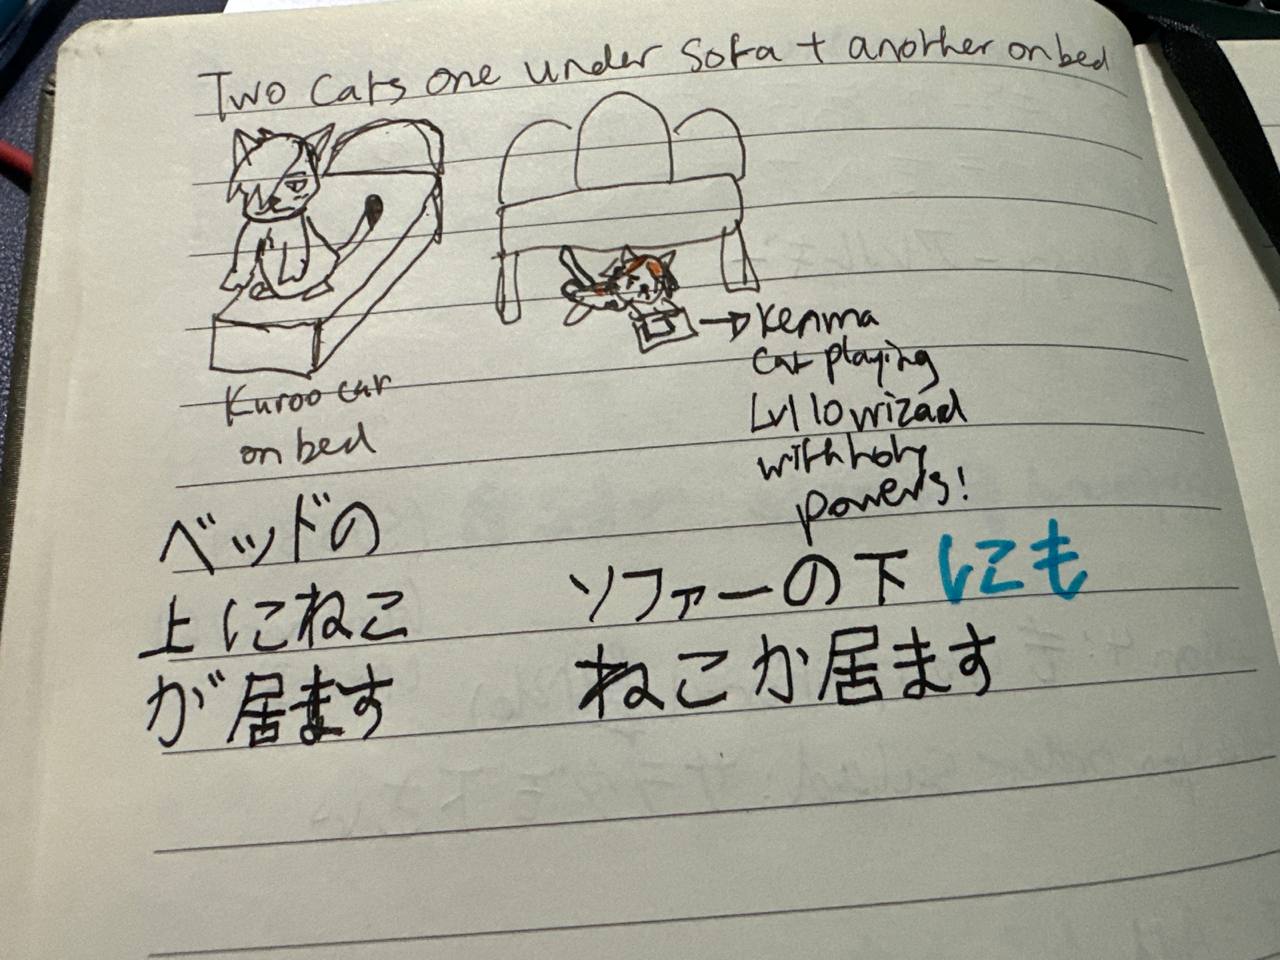 Two Cats one under Sofa + another on bed
Kuroo cat
on bed
→ Kenma
cat playing
Lvl 10 wizad
with holy
powers!
ベッドの
上にねこ
が居ます
ソファーの下にも
ねこが居ます